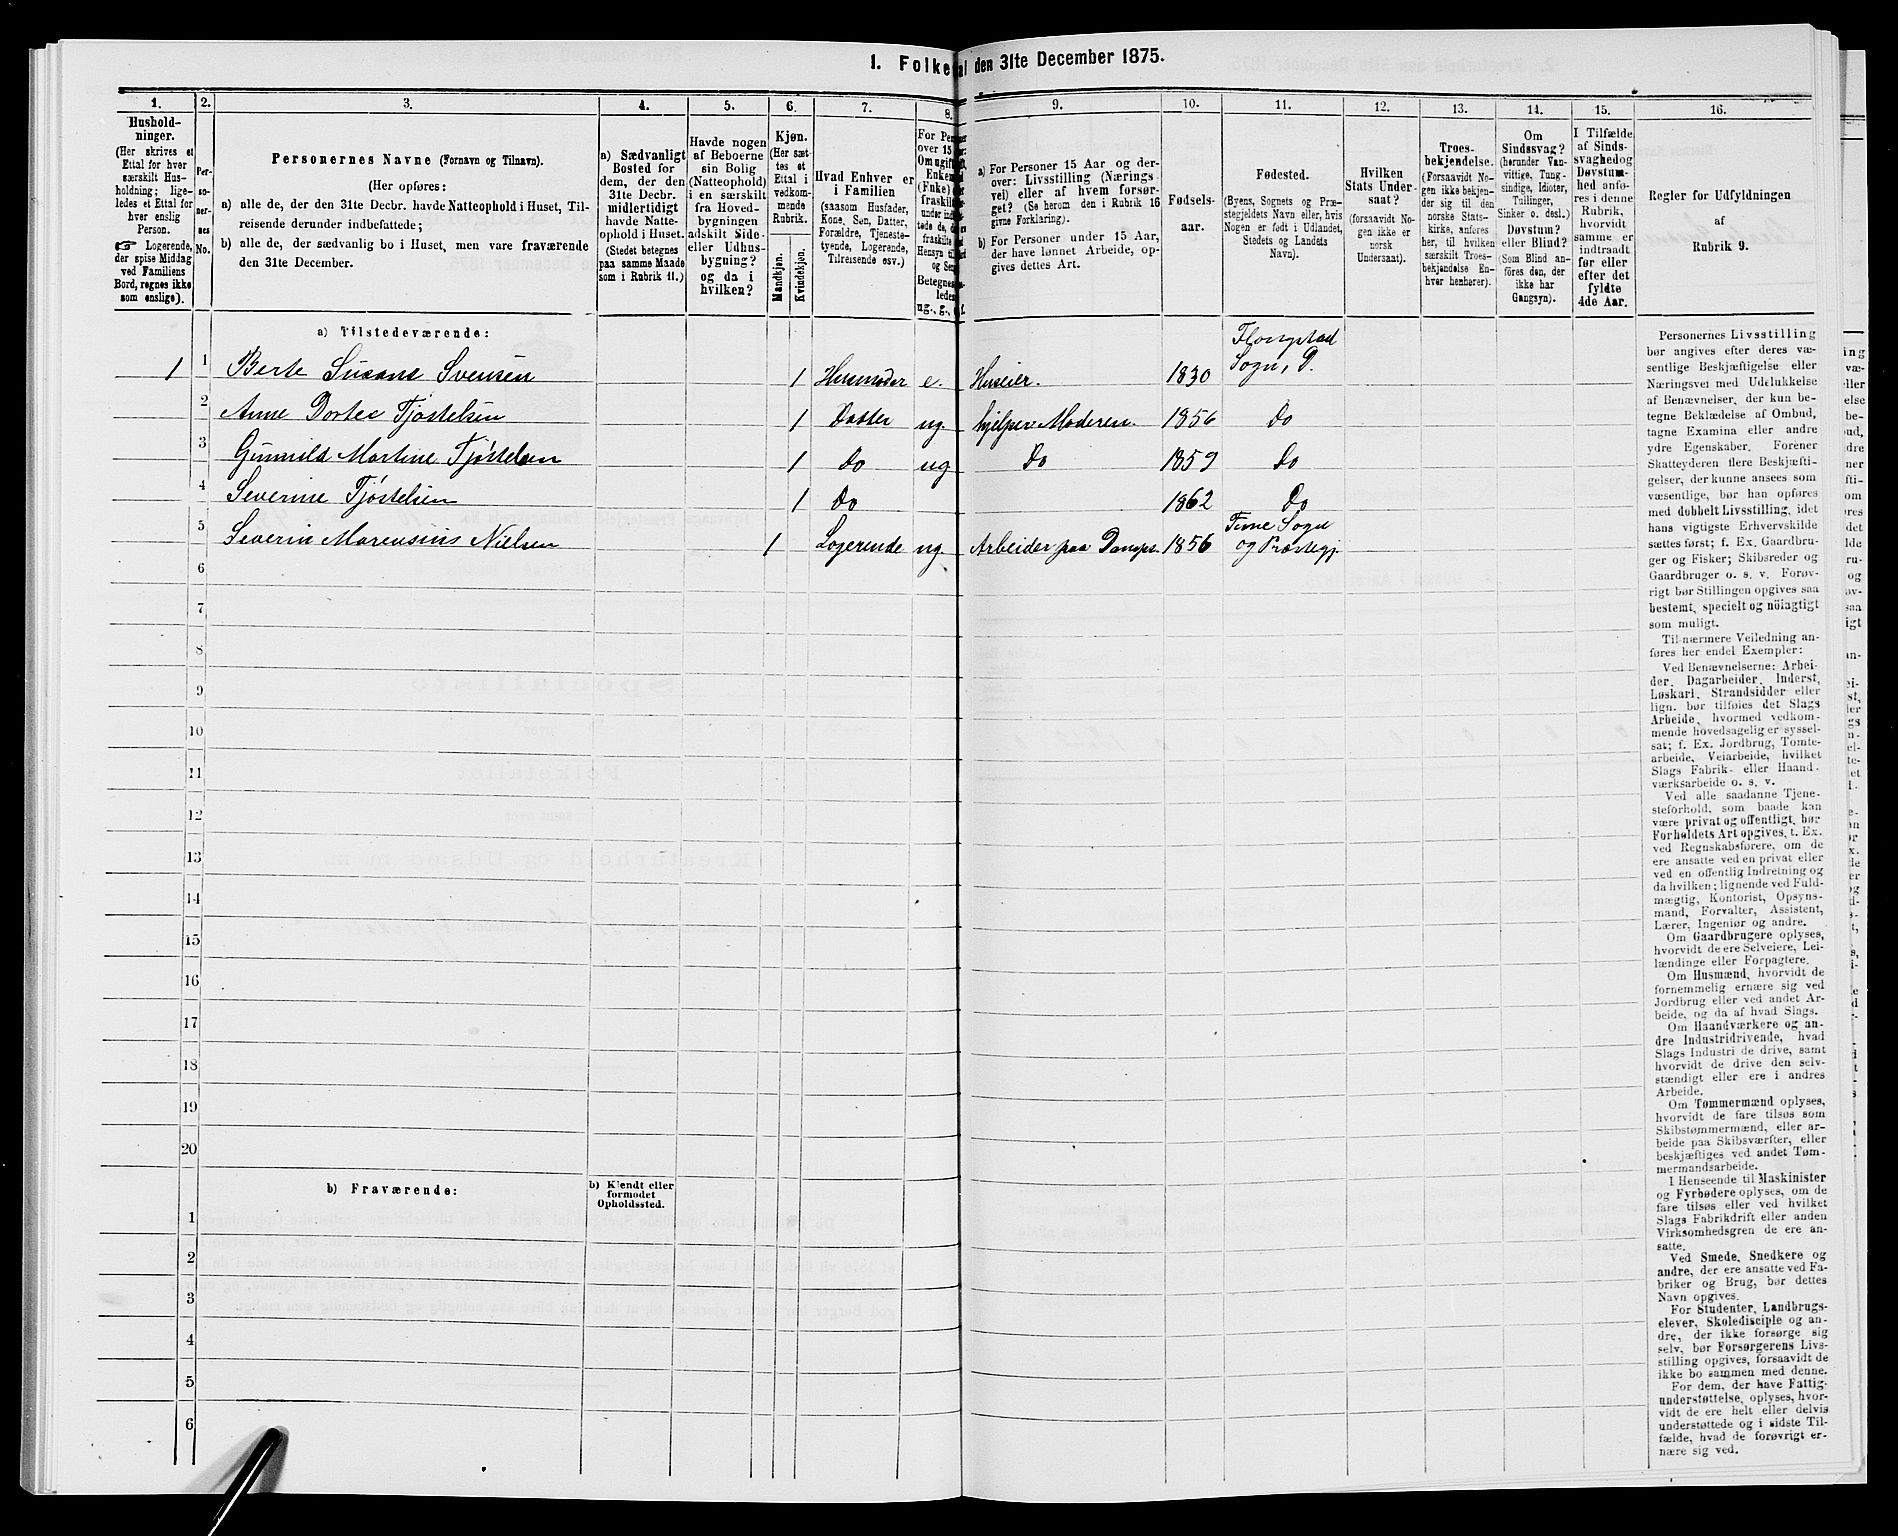 1. Folketal den 31te December 1875.
1.
Hushold-
ninger.
(Her skrives et
Ettal for hver
særskilt Hus-
holdning; lige-
ledes et Ettal for
hver enslig
Person.
☞ Logerende,
der spise Middag
ved Familiens
Bord, regnes ikke
som enslige).
2.
Per-
so-
ner-
nes
No.
3.
Personernes Navne (Fornavn og Tilnavn).
(Her opføres:
a) alle de, der den 31te Decbr. havde Natteophold i Huset, Til-
reisende derunder indbefattede;
b) alle de, der sædvanlig bo i Huset, men vare fraværende
den 31te December.
4.
a) Sædvanligt
Bosted for
dem, der den
31te Decbr.
midlertidigt
havde Natte-
ophold i Huset.
(Stedet betegnes
paa samme Maade
som i Rubrik 11.)
5.
Havde nogen
af Beboerne
sin Bolig
(Natteophold)
i en særskilt
fra Hoved-
bygningen
adskilt Side-
eller Udhus-
bygning?
og da i
hvilken?
6.
Kjøn.
(Her sæt-
tes et
Ettal i
vedkom-
mende
Rubrik.
Mandkjøn.
Kvindekjøn.
7.
Hvad Enhver er
i Familien
(saasom Husfader,
Kone, Søn, Datter,
Forældre, Tjeneste-
tyende, Logerende,
Tilreisende osv.)
8.
For Personer
over 15
Om ugift
Enke
(Fnke)
fraskilt
9.
a) For Personer 15 Aar og der-
over: Livsstilling (Nærings-
vei) eller af hvem forsør-
get? (Se herom den i Rubrik 16
givne Forklaring).
b) For Personer under 15 Aar,
der have lønnet Arbeide, op-
gives dettes Art.
10.
Fødsels-
aar.
11.
Fødested.
(Byens, Sognets og Præ-
stegjeldets Navn eller, hvis
Nogen er født i Udlandet,
Stedets og Landets
Navn).
12.
Hvilken
Stats Under-
saat?
(forsaavidt No-
gen ikke er
norsk
Undersaat).
13.
Troes-
bekjendelse.
(Forsaavidt No-
gen ikke bekjen-
der sig til den
norske Stats-
kirke, anføres
her, til hvilken
særskilt Troes-
bekjendelse En-
hver henhører).
14.
Om
Sindssvag?
(herunder Van-
vittige, Tung-
sindige, Idioter,
Tullinger,
Sinker o. desl.)
Døvstum?
eller Blind?
(Som Blind an-
føres den, der
ikke har
Gangsyn).
15.
I Tilfælde
af Sinds-
svaghed og
Døvstum-
hed anfø-
res i denne
Rubrik,
hvorvidt
samme er
indtraadt
før eller
efter det
fyldte
4de Aar.
16.
Regler for Udfyldningen
af
Rubrik 9.
a) Tilstedeværende:
1 1 Berte Susane Svensen 1 Husmoder e. Huseier. 1830 Flongstad Sogn, D.
2 Anne Dortee Tjøstelsen 1 Datter ug. hjelper Moderen. 1856 Do
3 Gunnild Martine Tjøstelsen 1 Do ug Do 1859 Do
4 Severine Tjøstelsen 1 Do 1862 Do
5 Severin Marensius Nielsen 1 Logerende ug. Arbeider paa Damps. 1856 Time Sogn og Præstegj.
6
7
8
9
10
11
12
13
14
15
16
17
18
19
20
b) Fraværende:
b) Kjendt eller
formodet
Opholdssted.
1
2
3
4
5
6
Personernes Livsstilling
bør angives efter deres væ-
sentlige Beskjæftigelse eller
Næringsvei med Udelukkelse
af Benævnelser, der kun be-
tegne Beklædelse af Ombud,
tagne Examina eller andre
ydre Egenskaber. Forener
Skatteyderen flere Beskjæfti-
gelser, der kunne ansees som
væsentlige, bør han opføres
med dobbelt Livsstilling, idet
hans vigtigste Erhvervskilde
sættes først; f. Ex. Gaardbru-
ger og Fisker; Skibsreder og
Gaardbruger o. s. v. Forøv-
rigt bør Stillingen opgives saa
bestemt, specielt og nöiagtigt
som muligt.
Til nærmere Veiledning an-
føres her endel Exempler:
Ved Benævnelserne: Arbei-
der, Dagarbeider, Inderst,
Løskarl, Strandsidder eller
lign. bør tilføies det Slags
Arbeide, hvormed vedkom-
mende hovedsagelig er syssel-
sat; f. Ex. Jordbrug, Tomte-
arbeide, Veiarbeide, hvilket
Slags Fabrik- eller Haand-
værksarbeide o. s. v.
Ved alle saadanne Tjene-
steforhold, som baade kan
være privat og offentligt, bør
Forholdets Art opgives, t. Ex.
ved Regnskabsførere, om de
ere ansatte ved en privat eller
ved en offentlig Indretning og
da hvilken; lignende ved Fuld-
mægtig, Kontorist, Opsyns-
mand, Forvalter, Assistent,
Lærer, Ingeniør og andre.
Om Gaardbrugere oplyses,
hvorvidt de ere Selveiere, Lei-
lændinge eller Forpagtere.
Om Husmænd, hvorvidt de
fornemmelig ernære sig ved
Jordbrug eller ved andet Ar-
beide, og da af hvad Slags.
Om Haandværkere og an-
dre Industridrivende, hvad
Slags Industri de drive, samt
hvorvidt de drive den selv-
stændigt eller ere i andres
Arbeide.
Om Tømmermænd oplyses,
hvorvidt de fare tilsøs som
Skibstømmermænd, eller ar-
beide paa Skibsværfter, eller
beskjæftiges ved andet Tøm-
mermandsarbeide.
I Henseende til Maskinister
og Fyrbødere oplyses, om de
fare tilsøs eller ved hvilket
Slags Fabrikdrift eller anden
Virksomhedsgren de ere an-
satte.
Ved Smede, Snedkere og
andre, der ere ansatte ved Fa-
briker og Brug, bør dettes
Navn opgives.
For Studenter, Landbrugs-
elever, Skoledisciple og an-
dre, der ikke forsørge sig
selv, bør Forsørgerens Livs-
stilling opgives, forsaavidt de
ikke bo sammen med denne.
For dem, der have Fattig-
understøttelse, oplyses, hvor-
vidt de ere helt eller delvis
understøttede og i sidste Til-
fælde, hvad de forøvrigt er-
nære sig ved.